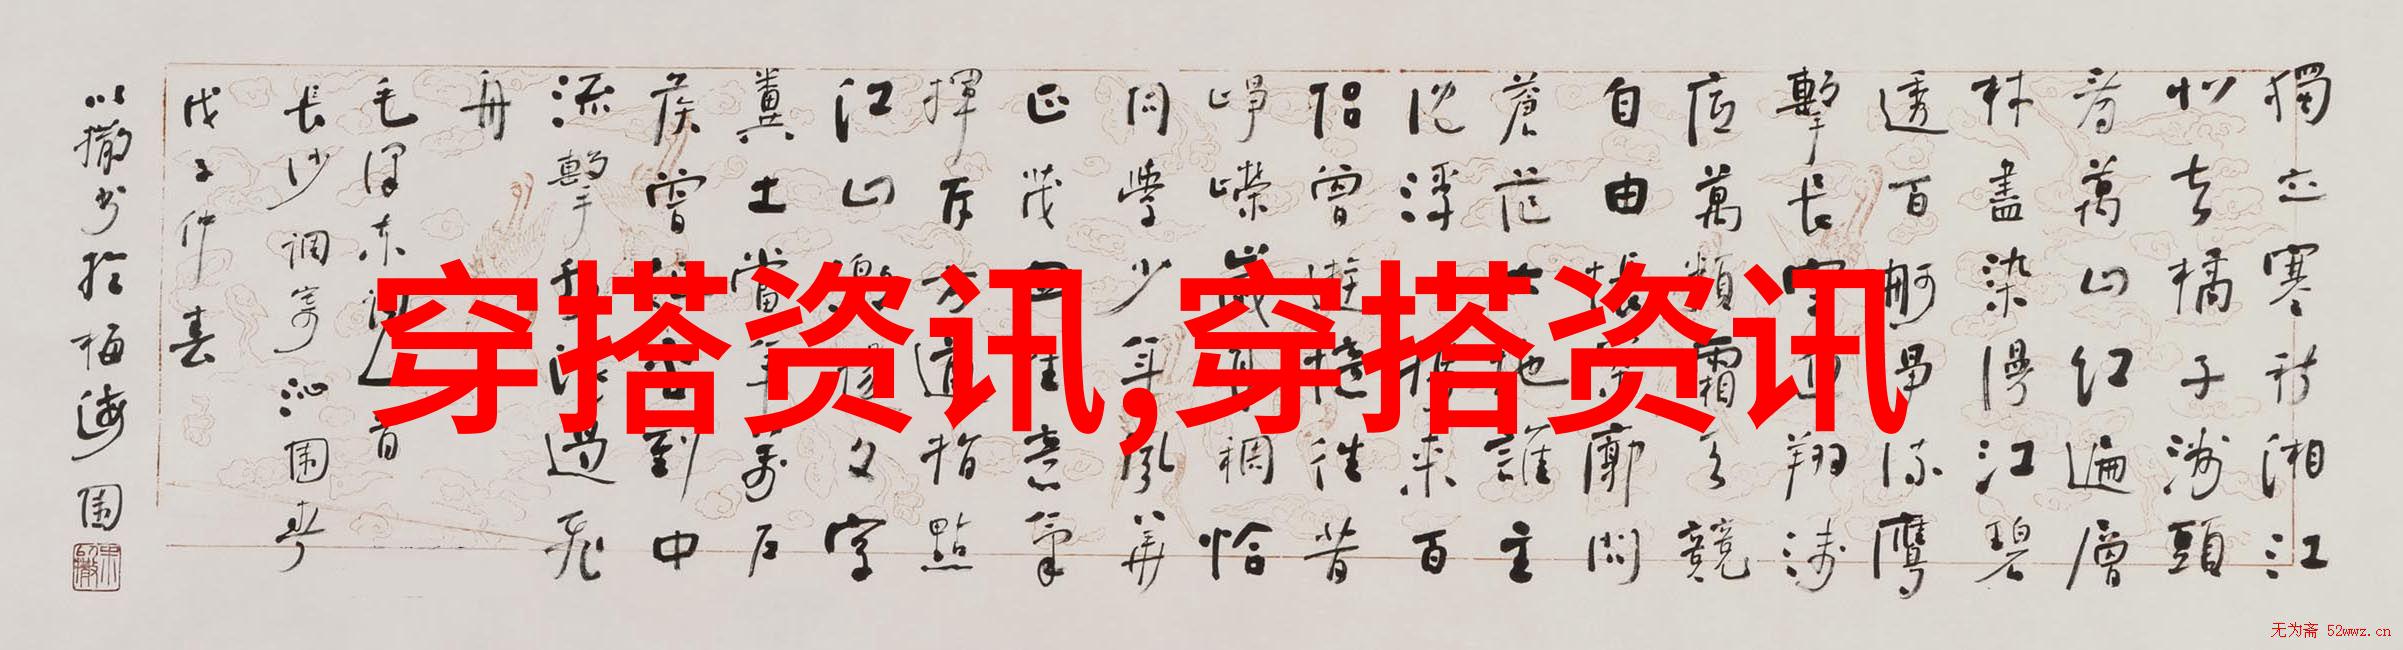 獨立寒秋湘江
北去橘子洲頭
看萬山红遍層
林盡染漫江碧
透百舸爭流鷹
擊長空翔淺
底萬類霜天競
自由悵寥廓問
蒼茫大地誰主
沈浮攜来百
侣曾遊憶往昔
崢嶸歲月稠恰
同學少年風華
正茂書生意氣
揮斥方遒指點
江山激揚文字
糞土當年萬户
侯曾記否到中
流擊水浪遏飛
舟
毛澤東詞首
長沙調寄沁園春
戊子仲春
以撒书於梅海園
穿搭资讯,穿搭资讯
无为斋 52wwz.cn